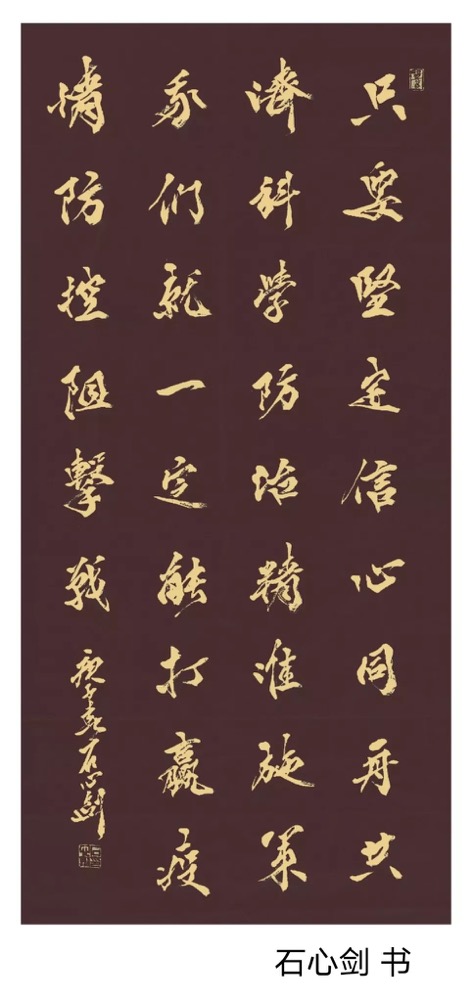 只要堅定信心同舟共
濟科學防治精准施策
我们就一定能打赢疫
情防控阻擊战
庚子春石心剑
石心剑 书